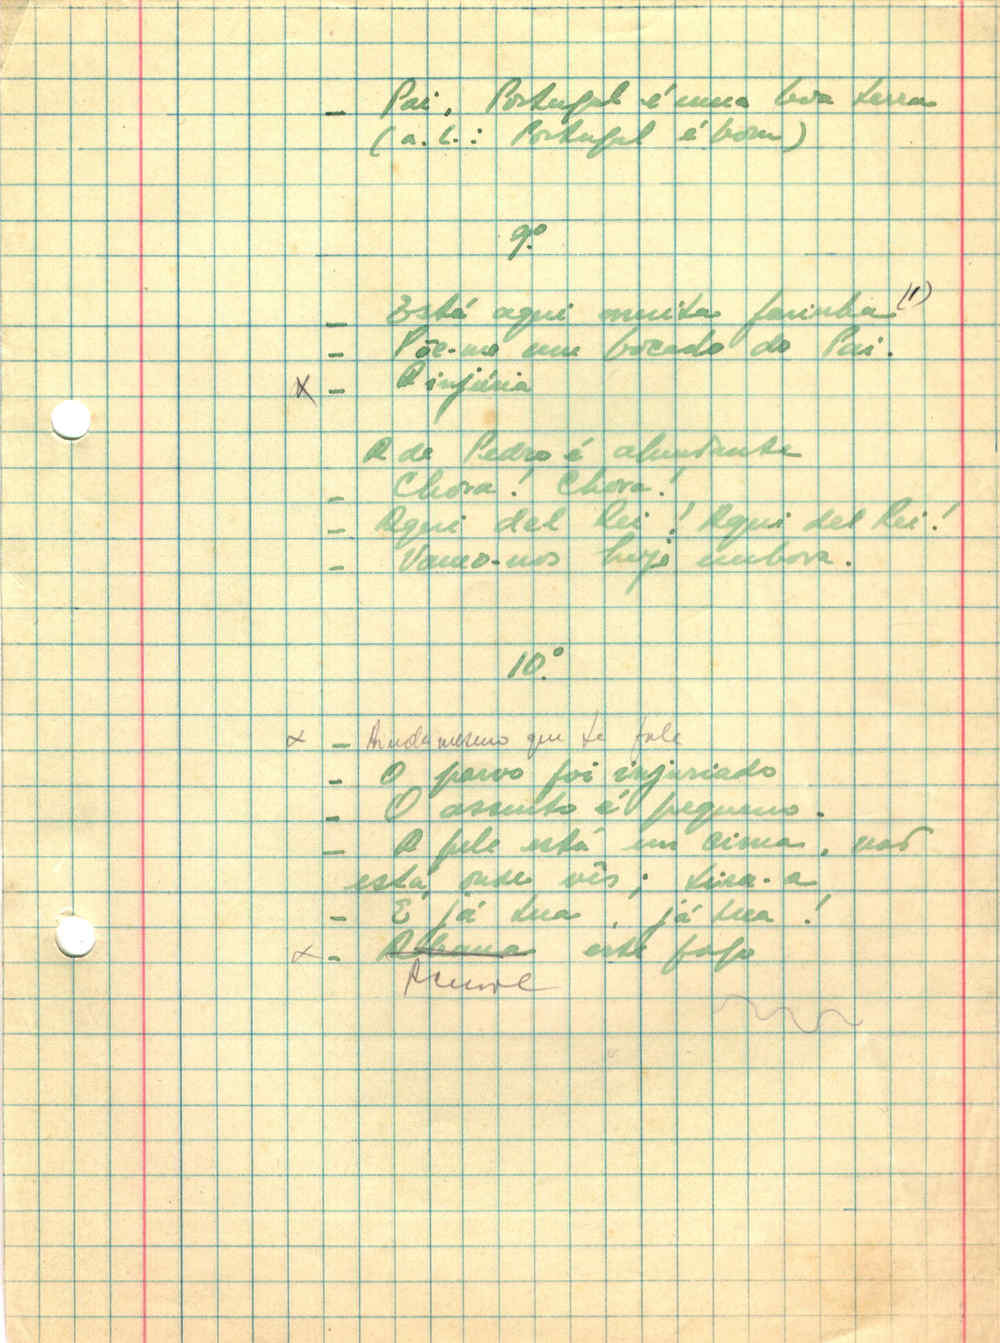 - Pai, Portugal é uma boa terra
(a. L.: Portugal é bom)
9º
- Está aqui muita farinha (1)
- Põe-me um bocado do Pai.
x - A injúria
A de Pedro é abundante
- Chora! Chora!
- Aqui del Rei! Aqui del Rei!
- Vamo-nos hoje embora.
10º
x - Ainda mesmo que te fale
- O parvo foi injuriado
- O assunto é pequeno.
- A pele está em cima, não
está, onde vês; tira-a
- É já tua, já tua!
x - este fogo